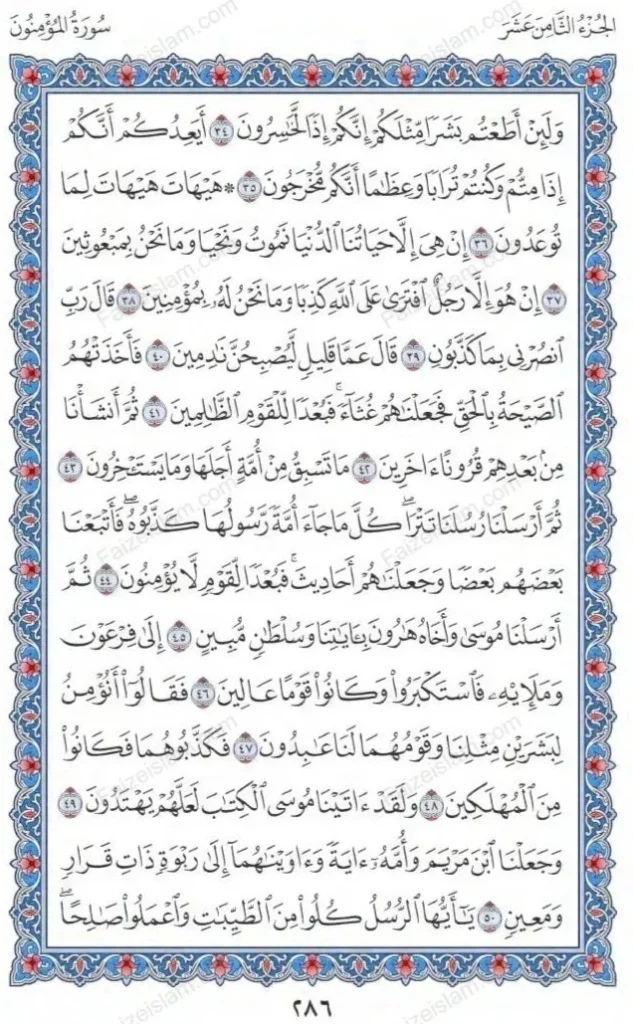 الجُزءُ الثَّامِنَ عَشَرَ
سُورَةُ المُؤۡمِنُونَ
وَلَئِنۡ أَطَعۡتُم بَشَرٗا مِّثۡلَكُمۡ إِنَّكُمۡ إِذٗا لَّخَٰسِرُونَ ٣٤ أَيَعِدُكُمۡ أَنَّكُمۡ
إِذَا مِتُّمۡ وَكُنتُمۡ تُرَابٗا وَعِظَٰمًا أَنَّكُم مُّخۡرَجُونَ ٣٥ * هَيۡهَاتَ هَيۡهَاتَ لِمَا
تُوعَدُونَ ٣٦ إِنۡ هِيَ إِلَّا حَيَاتُنَا ٱلدُّنۡيَا نَمُوتُ وَنَحۡيَا وَمَا نَحۡنُ بِمَبۡعُوثِينَ
٣٧ إِنۡ هُوَ إِلَّا رَجُلٌ ٱفۡتَرَىٰ عَلَى ٱللَّهِ كَذِبٗا وَمَا نَحۡنُ لَهُۥ بِمُؤۡمِنِينَ ٣٨ قَالَ رَبِّ
ٱنصُرۡنِي بِمَا كَذَّبُونِ ٣٩ قَالَ عَمَّا قَلِيلٖ لَّيُصۡبِحُنَّ نَٰدِمِينَ ٤٠ فَأَخَذَتۡهُمُ
ٱلصَّيۡحَةُ بِٱلۡحَقِّ فَجَعَلۡنَٰهُمۡ غُثَآءٗۚ فَبُعۡدٗا لِّلۡقَوۡمِ ٱلظَّٰلِمِينَ ٤١ ثُمَّ أَنشَأۡنَا
مِنۢ بَعۡدِهِمۡ قُرُونًا ءَاخَرِينَ ٤٢ مَا تَسۡبِقُ مِنۡ أُمَّةٍ أَجَلَهَا وَمَا يَسۡتَـٔۡخِرُونَ ٤٣
ثُمَّ أَرۡسَلۡنَا رُسُلَنَا تَتۡرَاۖ كُلَّ مَا جَآءَ أُمَّةٗ رَّسُولُهَا كَذَّبُوهُۖ فَأَتۡبَعۡنَا
بَعۡضَهُم بَعۡضٗا وَجَعَلۡنَٰهُمۡ أَحَادِيثَۚ فَبُعۡدٗا لِّقَوۡمٖ لَّا يُؤۡمِنُونَ ٤٤ ثُمَّ
أَرۡسَلۡنَا مُوسَىٰ وَأَخَاهُ هَٰرُونَ بِـَٔايَٰتِنَا وَسُلۡطَٰنٖ مُّبِينٍ ٤٥ إِلَىٰ فِرۡعَوۡنَ
وَمَلَإِيْهِۦ فَٱسۡتَكۡبَرُواْ وَكَانُواْ قَوۡمًا عَالِينَ ٤٦ فَقَالُوٓاْ أَنُؤۡمِنُ
لِبَشَرَيۡنِ مِثۡلِنَا وَقَوۡمُهُمَا لَنَا عَٰبِدُونَ ٤٧ فَكَذَّبُوهُمَا فَكَانُواْ
مِنَ ٱلۡمُهۡلَكِينَ ٤٨ وَلَقَدۡ ءَاتَيۡنَا مُوسَى ٱلۡكِتَٰبَ لَعَلَّهُمۡ يَهۡتَدُونَ ٤٩
وَجَعَلۡنَا ٱبۡنَ مَرۡيَمَ وَأُمَّهُۥٓ ءَايَةٗ وَءَاوَيۡنَٰهُمَآ إِلَىٰ رَبۡوَةٖ ذَاتِ قَرَارٖ
وَمَعِينٖ ٥٠ يَٰٓأَيُّهَا ٱلرُّسُلُ كُلُواْ مِنَ ٱلطَّيِّبَٰتِ وَٱعۡمَلُواْ صَٰلِحًاۖ
٢٨٦
Faizeislam.com